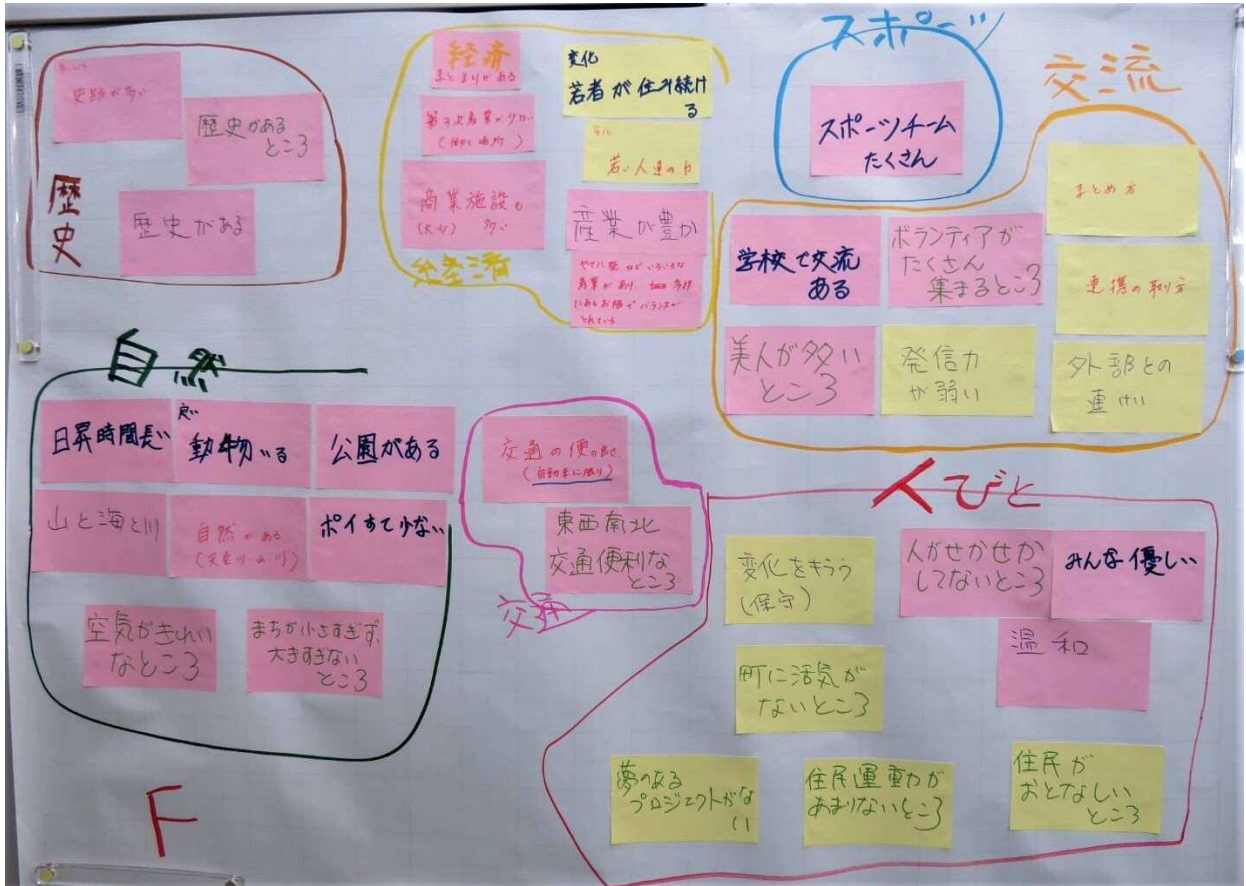 歴史
史跡が多い
歴史がある
ところ
歴史がある
経済
経済
まとまりがある
第3次産業が少ない
(働く場所)
商業施設も
(大きい) 多い
変化
若者が住み続け
る
変化
若い人達の力
産業が豊か
産業があり、
バランスが
とれている
スポーツ
スポーツチーム
たくさん
交流
まとめ方
学校で交流
ある
ボランティアが
たくさん
集まるところ
連携の取り方
美人が多い
ところ
発信力
が弱い
外部との
連けい
自然
日昇時間長い
良い
動物いる
公園がある
山と海と川
自然がある
(天竜川・山・川)
ポイすて少ない
空気がきれい
なところ
まちが小さすぎず、
大きすぎない
ところ
交通
交通の便の良さ
(自動車に限り)
東西南北
交通便利な
ところ
人びと
変化をきらう
(保守)
人がせかせか
してないところ
みんな優しい
温和
町に活気が
ないところ
夢のある
プロジェクトがな
い
住民運動が
あまりないところ
住民が
おとなしい
ところ
F